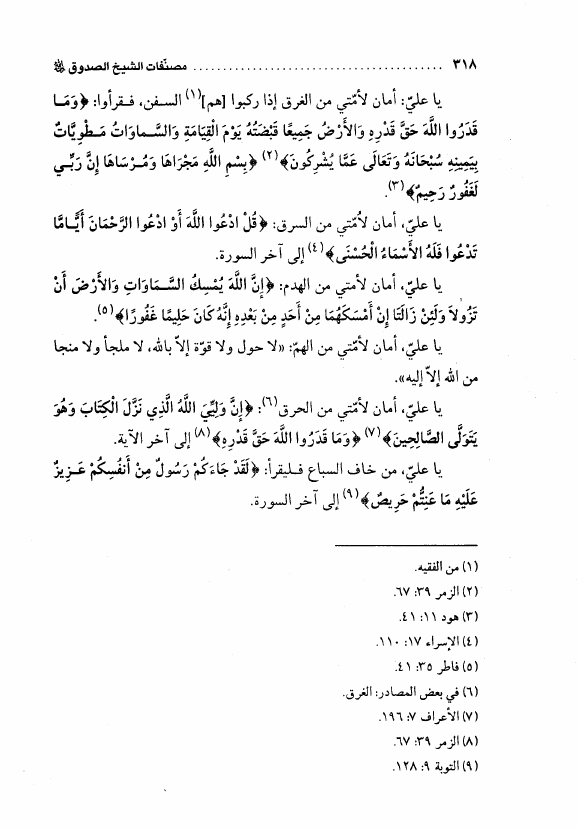 ٣١٨ ........................................ مصنّفات الشيخ الصدوق ﷺ
يا عليّ: أمان لأمّتي من الغرق إذا ركبوا [هم](١) السفن، فـقرأوا: ﴿وَمَـا
قَدَرُوا اللَّهَ حَقَّ قَدْرِهِ وَالأَرْضُ جَمِيعًا قَبْضَتُهُ يَوْمَ الْقِيَامَةِ وَالسَّـماوَاتُ مَـطْوِيَّاتٌ
بِيَمِينِهِ سُبْحَانَهُ وَتَعَالَى عَمَّا يُشْرِكُونَ﴾(٢) ﴿بِسْمِ اللَّهِ مَجْرَاهَا وَمُـرْسَاهَا إِنَّ رَبِّـي
لَغَفُورٌ رَحِيمٌ﴾(٣).
يا عليّ، أمان لاُمّتي من السرق: ﴿قُلْ ادْعُوا اللَّهَ أَوْ ادْعُوا الرَّحْمَانَ أَيًّـامَّا
تَدْعُوا فَلَهُ الأَسْمَاءُ الْحُسْنَى﴾(٤) إلى آخر السورة.
يا عليّ، أمان لأمتي من الهدم: ﴿إِنَّ اللَّهَ يُمْسِكُ السَّـمَاوَاتِ وَالأَرْضَ أَنْ
تَزُولاَ وَلَئِنْ زَالَتَا إِنْ أَمْسَكَهُمَا مِنْ أَحَدٍ مِنْ بَعْدِهِ إِنَّهُ كَانَ حَلِيمًا غَفُورًا﴾(٥).
يا عليّ، أمان لأمّتي من الهمّ: «لا حول ولا قوّة إلاّ بالله، لا ملجأ ولا منجا
من الله إلاّ إليه».
يا عليّ، أمان لأمّتي من الحرق(٦): ﴿إِنَّ وَلِيِّيَ اللَّهُ الَّذِي نَزَّلَ الْكِتَابَ وَهُوَ
يَتَوَلَّى الصَّالِحِينَ﴾(٧) ﴿وَمَا قَدَرُوا اللَّهَ حَقَّ قَدْرِهِ﴾(٨) إلى آخر الآية.
يا عليّ، من خاف السباع فـليقرأ: ﴿لَقَدْ جَاءَكُمْ رَسُولٌ مِنْ أَنفُسِكُمْ عَـزِيزٌ
عَلَيْهِ مَا عَنِتُّمْ حَرِيصٌ﴾(٩) إلى آخر السورة.
(١) من الفقيه.
(٢) الزمر ٣٩: ٦٧.
(٣) هود ١١: ٤١.
(٤) الإسراء ١٧: ١١٠.
(٥) فاطر ٣٥: ٤١.
(٦) في بعض المصادر: الغرق.
(٧) الأعراف ٧: ١٩٦.
(٨) الزمر ٣٩: ٦٧.
(٩) التوبة ٩: ١٢٨.